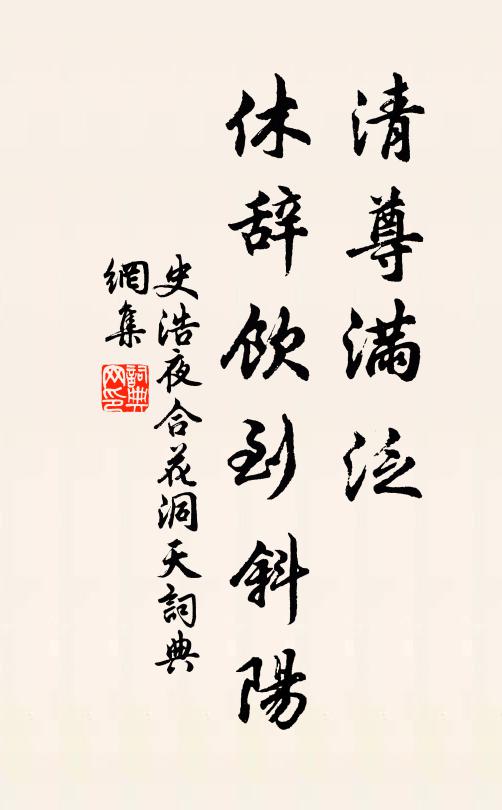 清尊滿泛
休辞飲到斜陽
史浩夜合花洞天詞典
網集
詞典
网印